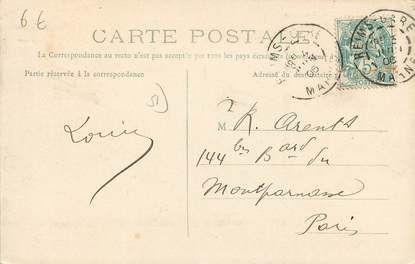 6 €
CARTE POSTALE
REIMS-GARE
MARNE
REIMS-GARE
MARNE
La Correspondance au recto n'est pas acceptée par tous les pays étrangers
Partie réservée à la correspondance
Adresse du destinataire
51
M. K. Arents
144 bis Bard du
Montparnasse
Paris
Louis